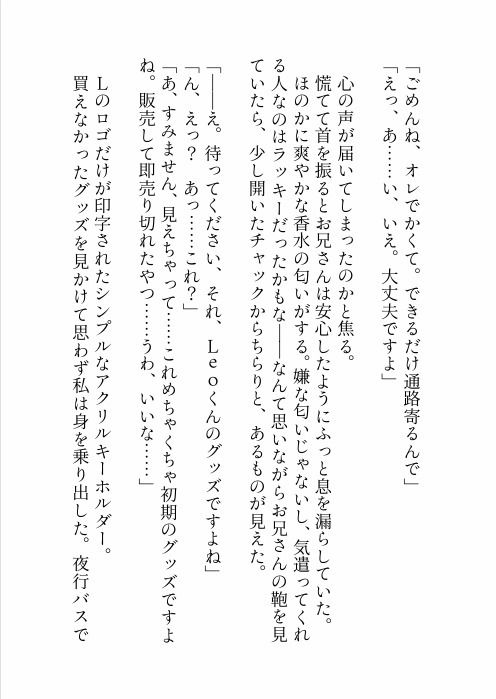 「ごめんね、オレでかくて。できるだけ通路寄るんで」
「えっ、あ……い、いえ。大丈夫ですよ」
心の声が届いてしまったのかと焦る。
慌てて首を振るとお兄さんは安心したようにふっと息を漏らしていた。
ほのかに爽やかな香水の匂いがする。嫌な匂いじゃないし、気遣ってくれ
る人なのはラッキーだったかもな――なんて思いながらお兄さんの鞄を見
ていたら、少し開いたチャックからちらりと、あるものが見えた。
「――え。待ってください、それ、Ｌｅｏくんのグッズですよね」
「ん、えっ？　あっ……これ？」
「あ、すみません、見えちゃって……これめちゃくちゃ初期のグッズですよ
ね。販売して即売り切れたやつ……うわ、いいな……」
Ｌのロゴだけが印字されたシンプルなアクリルキーホルダー。
買えなかったグッズを見かけて思わず私は身を乗り出した。夜行バスで